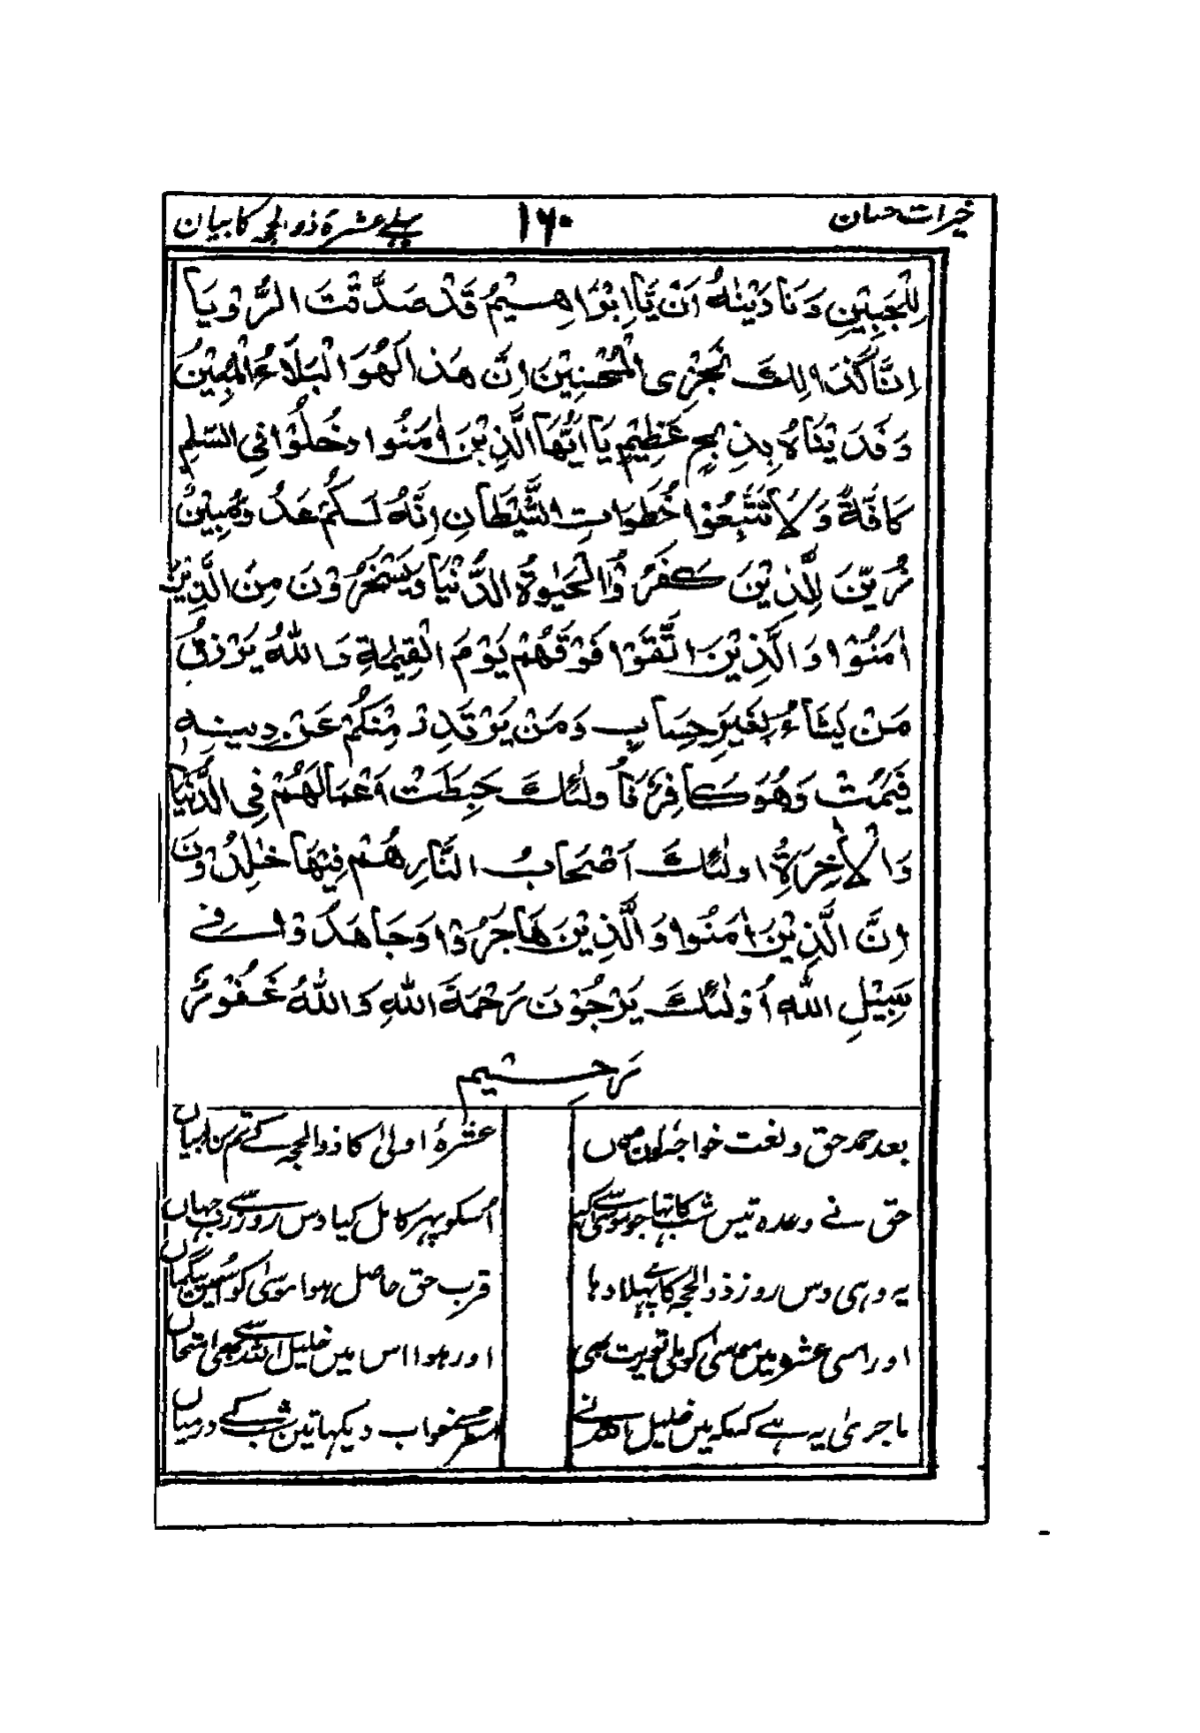 خیرات حسان ۱۶۰ پہلے عشرۂ ذوالحجہ کا بیان
لِلْجَبِيْنِ وَنَا دَيْنٰهُ اَنْ يَّا اِبْرَاهِيْمُ قَدْ صَدَّقْتَ الرُّوْيَا
اِنَّا كَذَالِكَ نَجْزِى الْمُحْسِنِيْنَ اِنَّ هٰذَا لَهُوَ الْبَلَاءُ الْمُبِيْنُ
وَفَدَيْنَاهُ بِذِبْحٍ عَظِيْمٍ يَا اَيُّهَا الَّذِيْنَ اٰمَنُوا دْخُلُوْا فِى السِّلْمِ
كَافَّةً وَلَا تَتَّبِعُوْا خُطُوَاتِ الشَّيْطَانِ اِنَّهُ لَكُمْ عَدُوٌّ مُّبِيْنٌ
زُيِّنَ لِلَّذِيْنَ كَفَرُوْا الْحَيٰوةُ الدُّنْيَا وَيَسْخَرُوْنَ مِنَ الَّذِيْنَ
اٰمَنُوْا وَالَّذِيْنَ اتَّقَوْا فَوْقَهُمْ يَوْمَ الْقِيٰمَةِ وَاللّٰهُ يَرْزُقُ
مَنْ يَشَاءُ بِغَيْرِ حِسَابٍ وَمَنْ يَرْتَدِدْ مِنْكُمْ عَنْ دِينِهِ
فَيَمُتْ وَهُوَ كَافِرٌ فَاُولٰئِكَ حَبِطَتْ اَعْمَالُهُمْ فِى الدُّنْيَا
وَالْاٰخِرَةِ اُولٰئِكَ اَصْحَابُ النَّارِ هُمْ فِيْهَا خٰلِدُوْنَ
اِنَّ الَّذِيْنَ اٰمَنُوا وَالَّذِيْنَ هَاجَرُوْا وَجَاهَدُوْا فِے
سَبِيْلِ اللّٰهِ اُوْلٰئِكَ يَرْجُوْنَ رَحْمَةَ اللّٰهِ وَاللّٰهُ غَفُوْرٌ
رَحِيْمٌ
بعد حمد حق و نعت خواجۂ کون و مکاں عشرۂ اولیٰ کا ذوالحجہ کے تم سن لو بیاں
حق نے وعدہ تیس شب کا تہا جو موسیٰ سے کیا اُسکو پہر کامل کیا دس روز سے رب جہاں
یہ وہی دس روز ذوالحجہ کا ہے پہلا دہا قرب حق حاصل ہوا موسیٰ کو اُسمین بیگماں
اور اسی عشرہ میں موسیٰ کو ملی توریت بھی اور ہوا اس میں خلیل اللہ سے بھی امتحاں
ماجریٰ یہ ہے کہ مکہ میں خلیل اللہ نے خواب دیکہا تین شب کے درمیاں